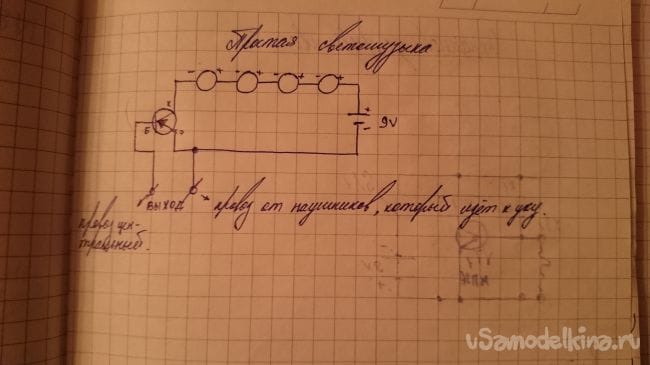 Простая светомузыка
- + - + - + - +
К
Б
Э
+
-
9V
ВЫХОД
провод от наушников, который идёт к уху.
провод цен-
тральный.
vSamodelkina.ru